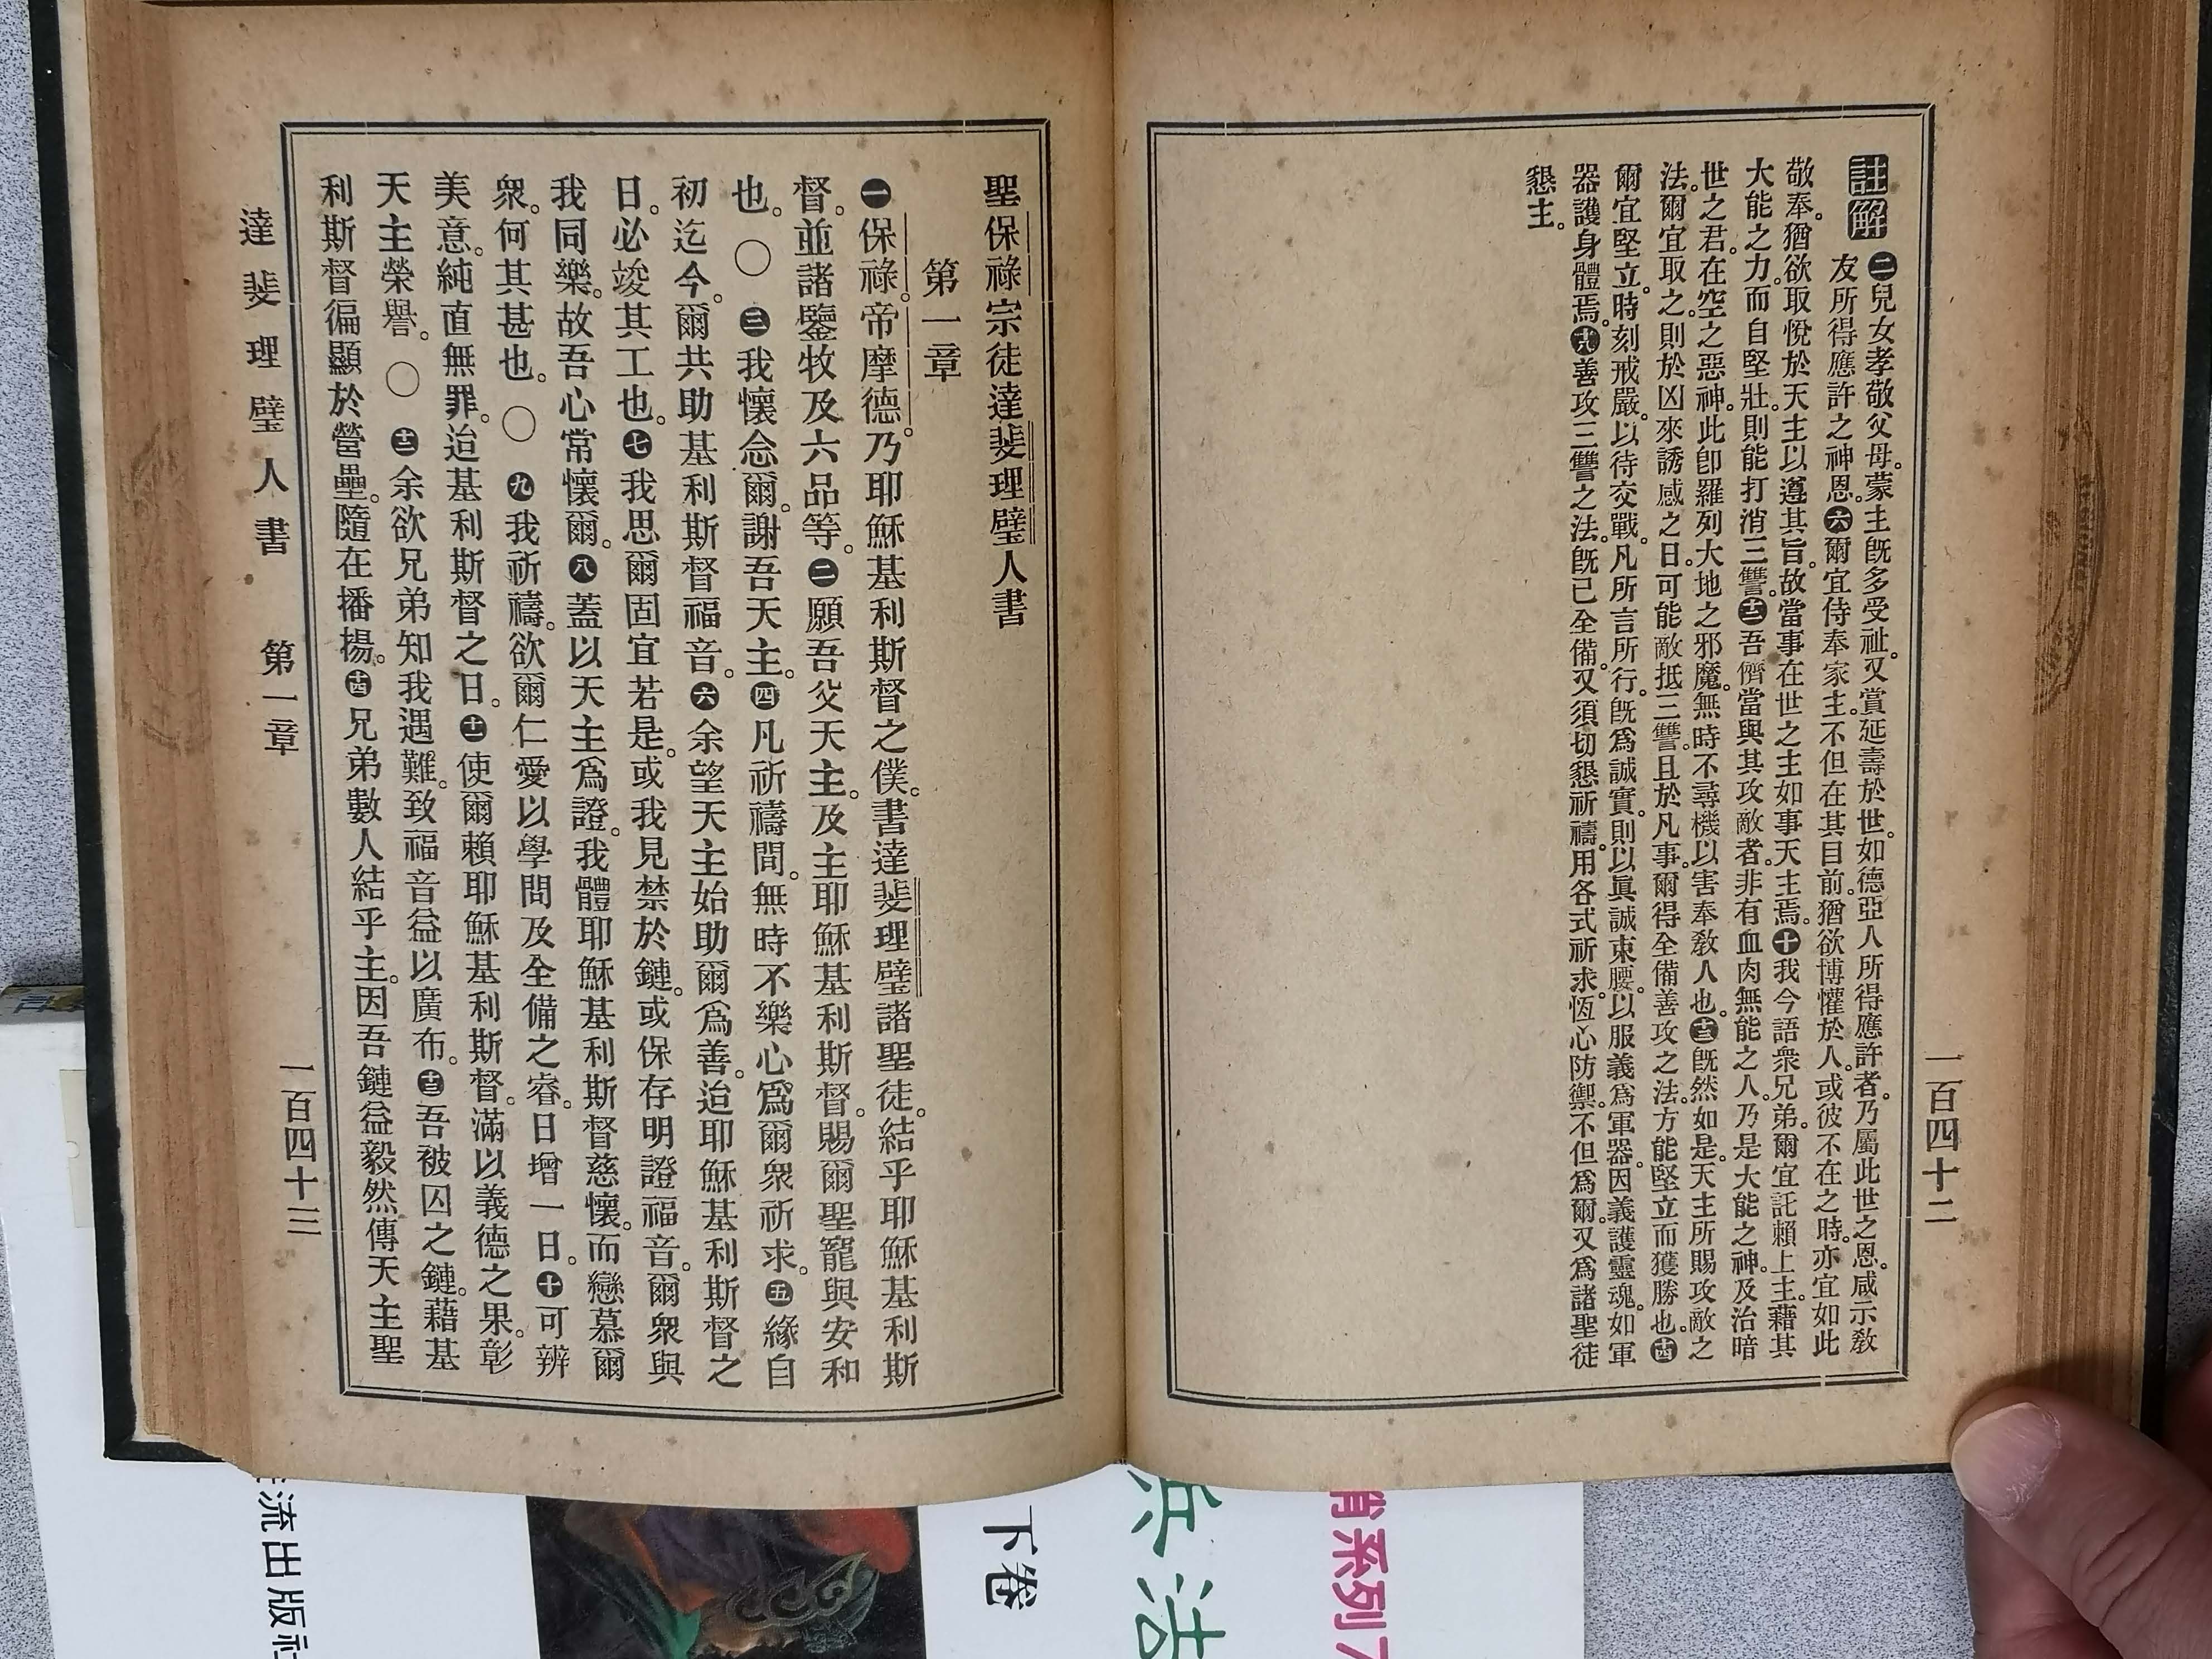 註解
㊁兒女孝敬父母。蒙主旣多受祉。又賞延壽於世。如德亞人所得應許者。乃屬此世之恩。咸示敎
友所得應許之神恩。㊅爾宜侍奉家主。不但在其目前。猶欲博懽於人。或彼不在之時。亦宜如此
敬奉。猶欲取悅於天主。以遵其旨。故當事在世之主。如事天主焉。㊉我今語衆兄弟。爾宜託賴上主。藉其
大能之力。而自堅壯。則能打消三讐。⓬吾儕當與其攻敵者。非有血肉無能之人。乃是大能之神。及治暗
世之君。在空之惡神。此卽羅列大地之邪魔。無時不尋機以害奉敎人也。⓭旣然如是。天主所賜攻敵之
法。爾宜取之。則於凶來誘惑之日。可能敵抵三讐。且於凡事。爾得全備善攻之法。方能堅立而獲勝也。⓮
爾宜堅立。時刻戒嚴。以待交戰。凡所言所行。旣爲誠實。則以眞誠束腰。以服義爲軍器。因義護靈魂。如軍
器護身體焉。⓲善攻三讐之法。旣已全備。又須切懇祈禱。用各式祈求。恆心防禦。不但爲爾。又爲諸聖徒
懇主。
一百四十二
聖保祿宗徒達斐理璧人書
第一章
㊀保祿。帝摩德。乃耶穌基利斯督之僕。書達斐理璧諸聖徒。結乎耶穌基利斯
督。並諸鑒牧及六品等。㊁願吾父天主。及主耶穌基利斯督。賜爾聖寵與安和
也。〇㊂我懷念爾。謝吾天主。㊃凡祈禱間。無時不樂心爲爾衆祈求。㊄緣自
初迄今。爾共助基利斯督福音。㊅余望天主始助爾爲善。迨耶穌基利斯督之
日。必竣其工也。㊆我思爾固宜若是。或我見禁於鏈。或保存明證福音。爾衆與
我同樂。故吾心常懷爾。㊇蓋以天主爲證。我體耶穌基利斯督慈懷。而戀慕爾
衆。何其甚也。〇㊈我祈禱。欲爾仁愛以學問及全備之睿。日增一日。㊉可辨
美意。純直無罪。迨基利斯督之日。⓫使爾賴耶穌基利斯督。滿以義德之果。彰
天主榮譽。〇⓬余欲兄弟知我遇難。致福音益以廣布。⓭吾被囚之鏈。藉基
利斯督徧顯於營壘。隨在播揚。⓮兄弟數人結乎主。因吾鏈益毅然傳天主聖
達斐理璧人書 第一章
一百四十三
流出版社
下卷
兵法
肖系列7